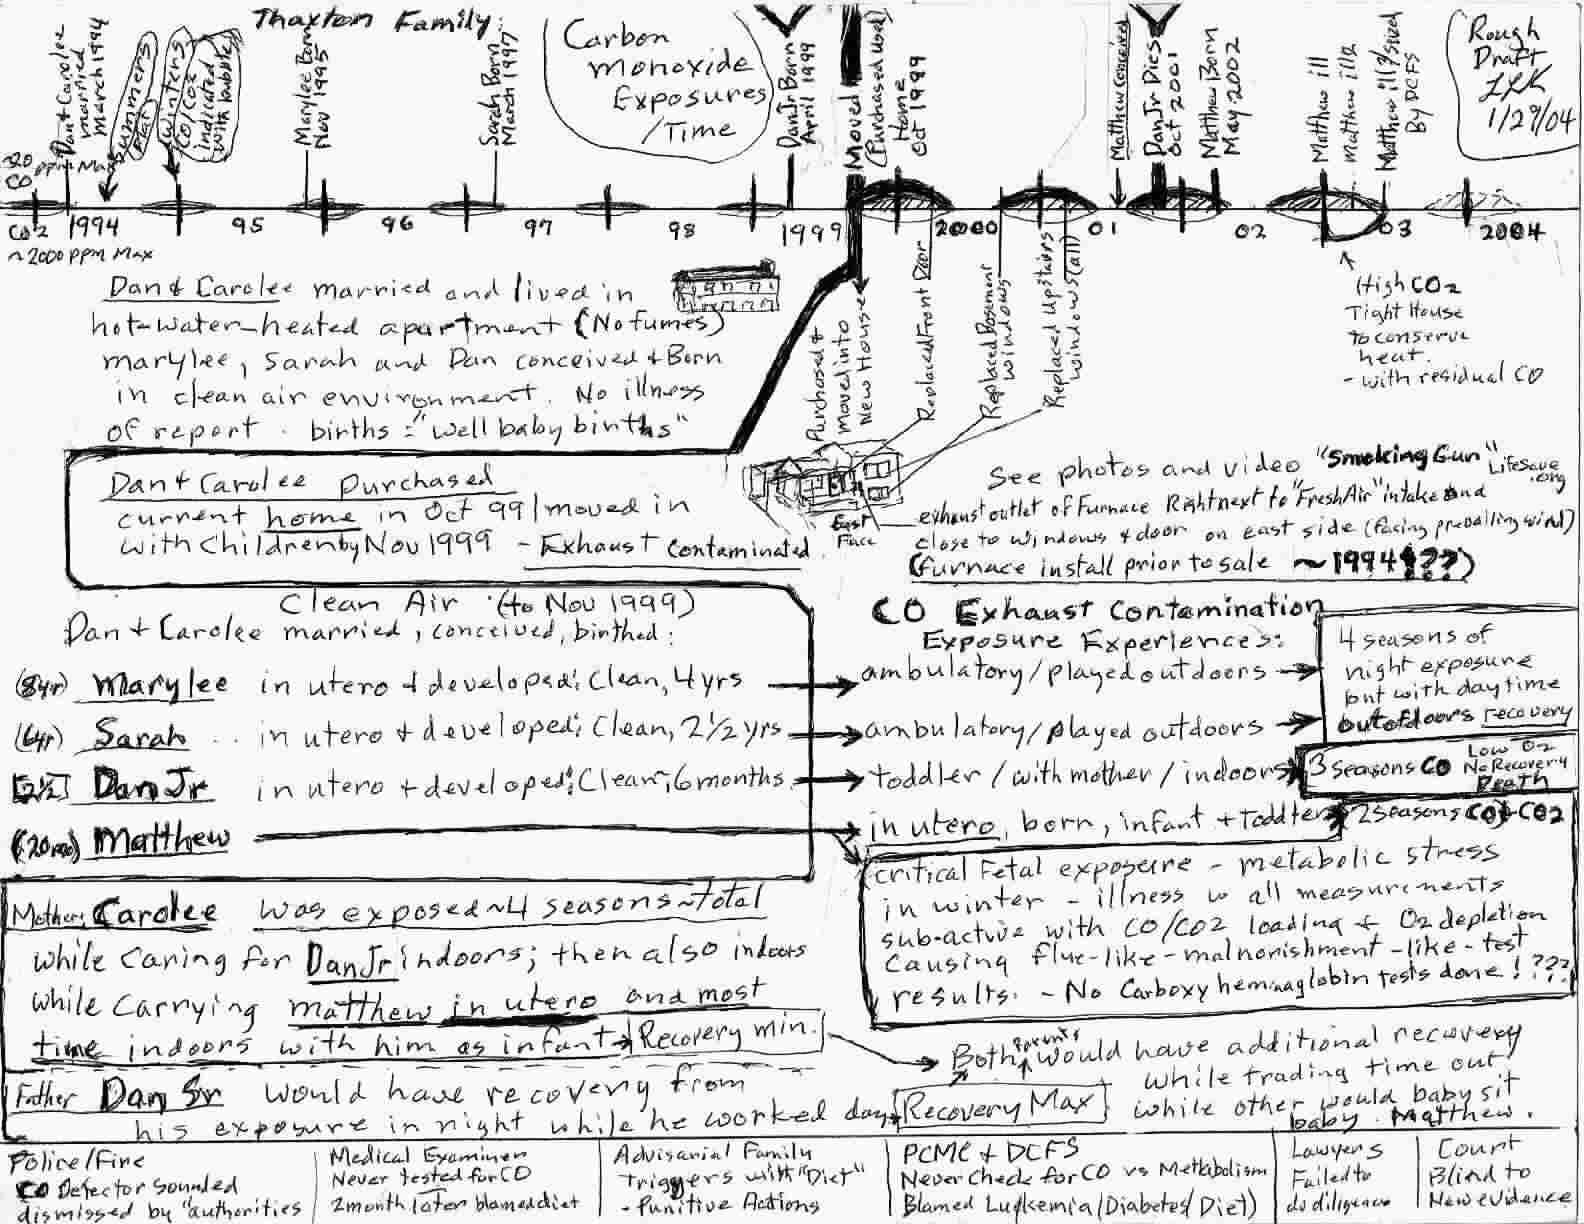 Thaxton Family:
Carbon
monoxide
Exposures
/Time
Rough
Draft
1/29/04
Dan & Carolee
married
March 1994
Summers
Winters
CO/CO2
indicated
with lobule
Marylee Born
Nov 1995
Sarah Born
March 1997
DanJr Born
April 1999
Moved
(Purchased Used)
Home
Oct 1999
Matthew Conceived
DanJr Dies
Oct 2001
Matthew Born
May 2002
Matthew ill
Matthew ill 2
Matthew ill 3/Sized
By DCFS
~20 ppm Max
CO
CO2
~2000 ppm Max
1994 95 96 97 98 1999 2000 01 02 03 2004
Purchased &
moved into
New House
Replaced Front Door
Replaced Basement
windows
Replaced Upstairs
windows (all)
High CO2
Tight House
to conserve
heat.
- with residual CO
Dan & Carolee married and lived in
hot-water-heated apartment (No fumes)
marylee, Sarah and Dan conceived & Born
in clean air environment. No illness
of report. births = "well baby births"
Dan & Carolee purchased
current home in Oct 99/moved in
with Children by Nov 1999 - Exhaust contaminated.
East
Face
See photos and video "Smoking Gun" LifeSave
.org
exhaust outlet of Furnace Right next to "Fresh Air" intake and
close to windows & door on east side (facing prevailing wind)
(furnace install prior to sale ~1994???)
Clean Air (to Nov 1999)
Dan & Carolee married, conceived, birthed:
(8yr) Marylee in utero & developed; Clean, 4 yrs
(6yr) Sarah .. in utero & developed; Clean, 2 1/2 yrs
[2 1/2] Dan Jr in utero & developed; Clean; 6 months
(20mo) Matthew
CO Exhaust Contamination
Exposure Experiences:
ambulatory/played outdoors
ambulatory/played outdoors
toddler/with mother/indoors
in utero, born, infant + toddler
4 seasons of
night exposure
but with daytime
out of doors recovery
3 seasons CO
Low O2
No Recovery
Death
2 seasons CO + CO2
Critical Fetal exposure - metabolic stress
in winter - illness w all measurements
sub-active with CO/CO2 loading & O2 depletion
causing flue-like-malnorishment-like-test
results. - No Carboxyhemaaglobin tests done!???
Mother: Carolee was exposed ~4 seasons ~total
while caring for DanJr indoors; then also indoors
while carrying matthew in utero and most
time indoors with him as infant Recovery min.
Father Dan Sr would have recovery from
his exposure in night while he worked days Recovery Max
Both parents would have additional recovery
while trading time out
while other would baby sit
baby. Matthew.
Police/Fire
CO Detector sounded
dismissed by "authorities
Medical Examiner
Never tested for CO
2 month later blamed diet
Advisarial Family
triggers with "Diet"
- Punitive Actions
PCMC & DCFS
Never Check for CO vs Metkabolism
Blamed Lukemia/Diabetes/Diet)
Lawyers
Failed to
do diligence
Court
Blind to
New evidence